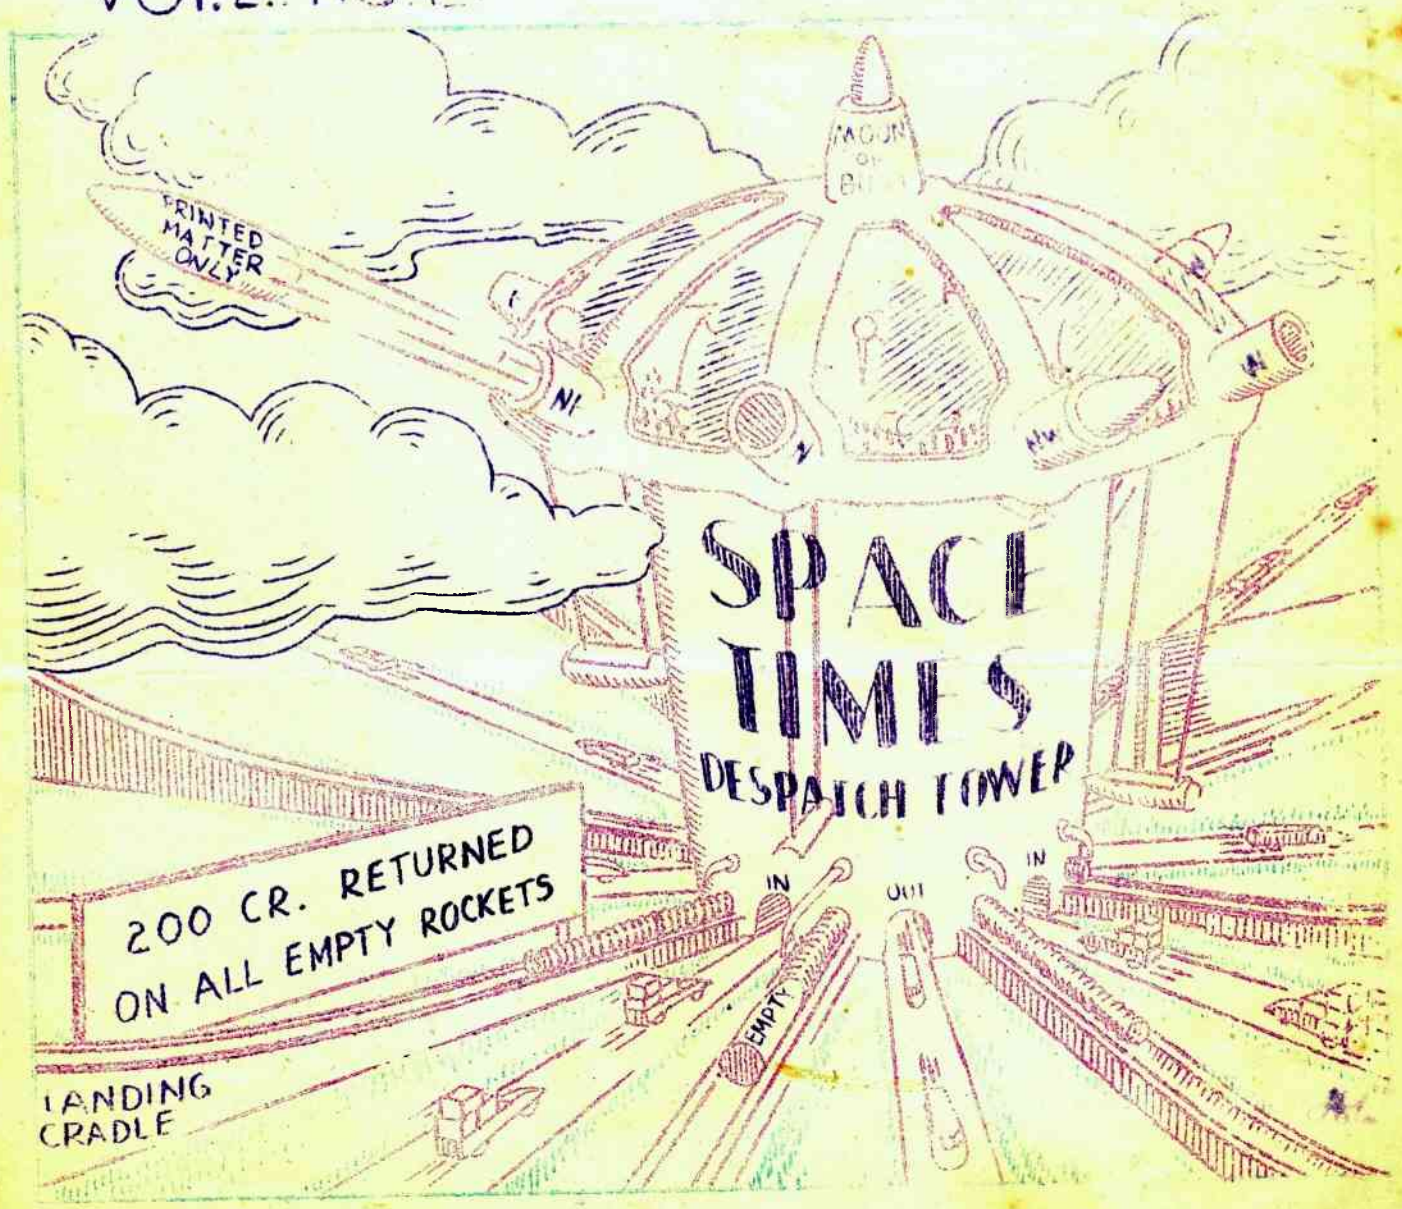 VOL.2.
MOON
OR
PRINTED
MATTER
ONLY
N
SPACE
TIMES
DESPATCH TOWER
IN
IN
OUT
200 CR. RETURNED
ON ALL EMPTY ROCKETS
EMPTY
LANDING
CRADLE